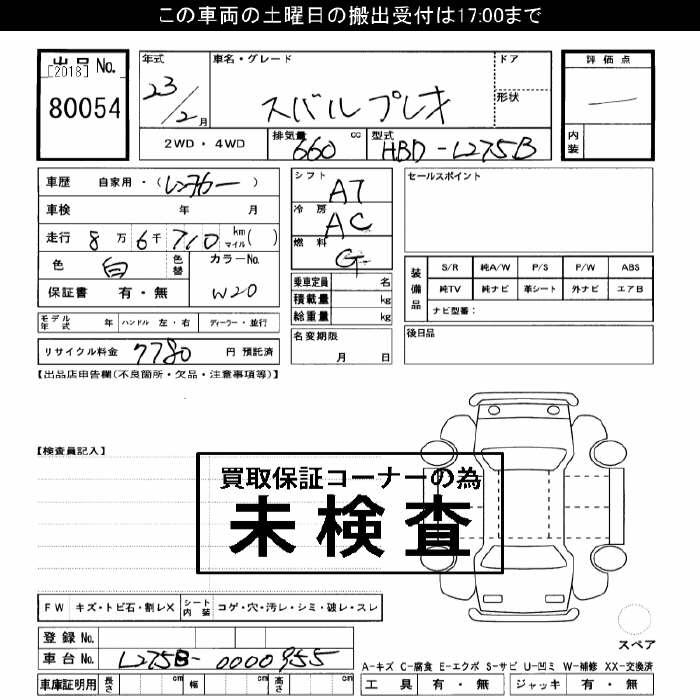 この車両の土曜日の搬出受付は17:00まで
出品No.
[2018]
80054
年式
23/2月
車名・グレード
スバルプレオ
ドア
形状
評価点
内装
2WD・4WD
排気量
660
cc
型式
HBD-L275B
車歴 自家用・(レンタカー)
車検 年 月
走行 8万6千710 km マイル( )
色 白 色替
カラーNo.
W20
保証書 有・無
シフト AT
冷房 AC
燃料 G
乗車定員 名
積載量 kg
総重量 kg
セールスポイント
装備品
S/R 純A/W P/S P/W ABS
純TV 純ナビ 革シート 外ナビ エアB
ナビ型番:
モデル年式 年 ハンドル 左・右 ディーラー・並行
リサイクル料金 7780 円 預託済
名変期限
月 日
後日品
【出品店申告欄(不良箇所・欠品・注意事項等)】
【検査員記入】
買取保証コーナーの為
未検査
FW キズ・トビ石・割レX シート内装 コゲ・穴・汚レ・シミ・破レ・スレ
登録No.
車台No. L275B-0000955
スペア
A-キズ C-腐食 E-エクボ S-サビ U-凹ミ W-補修 XX-交換済
車庫証明用 長さ cm 幅 cm 高さ cm
工具 有・無 ジャッキ 有・無